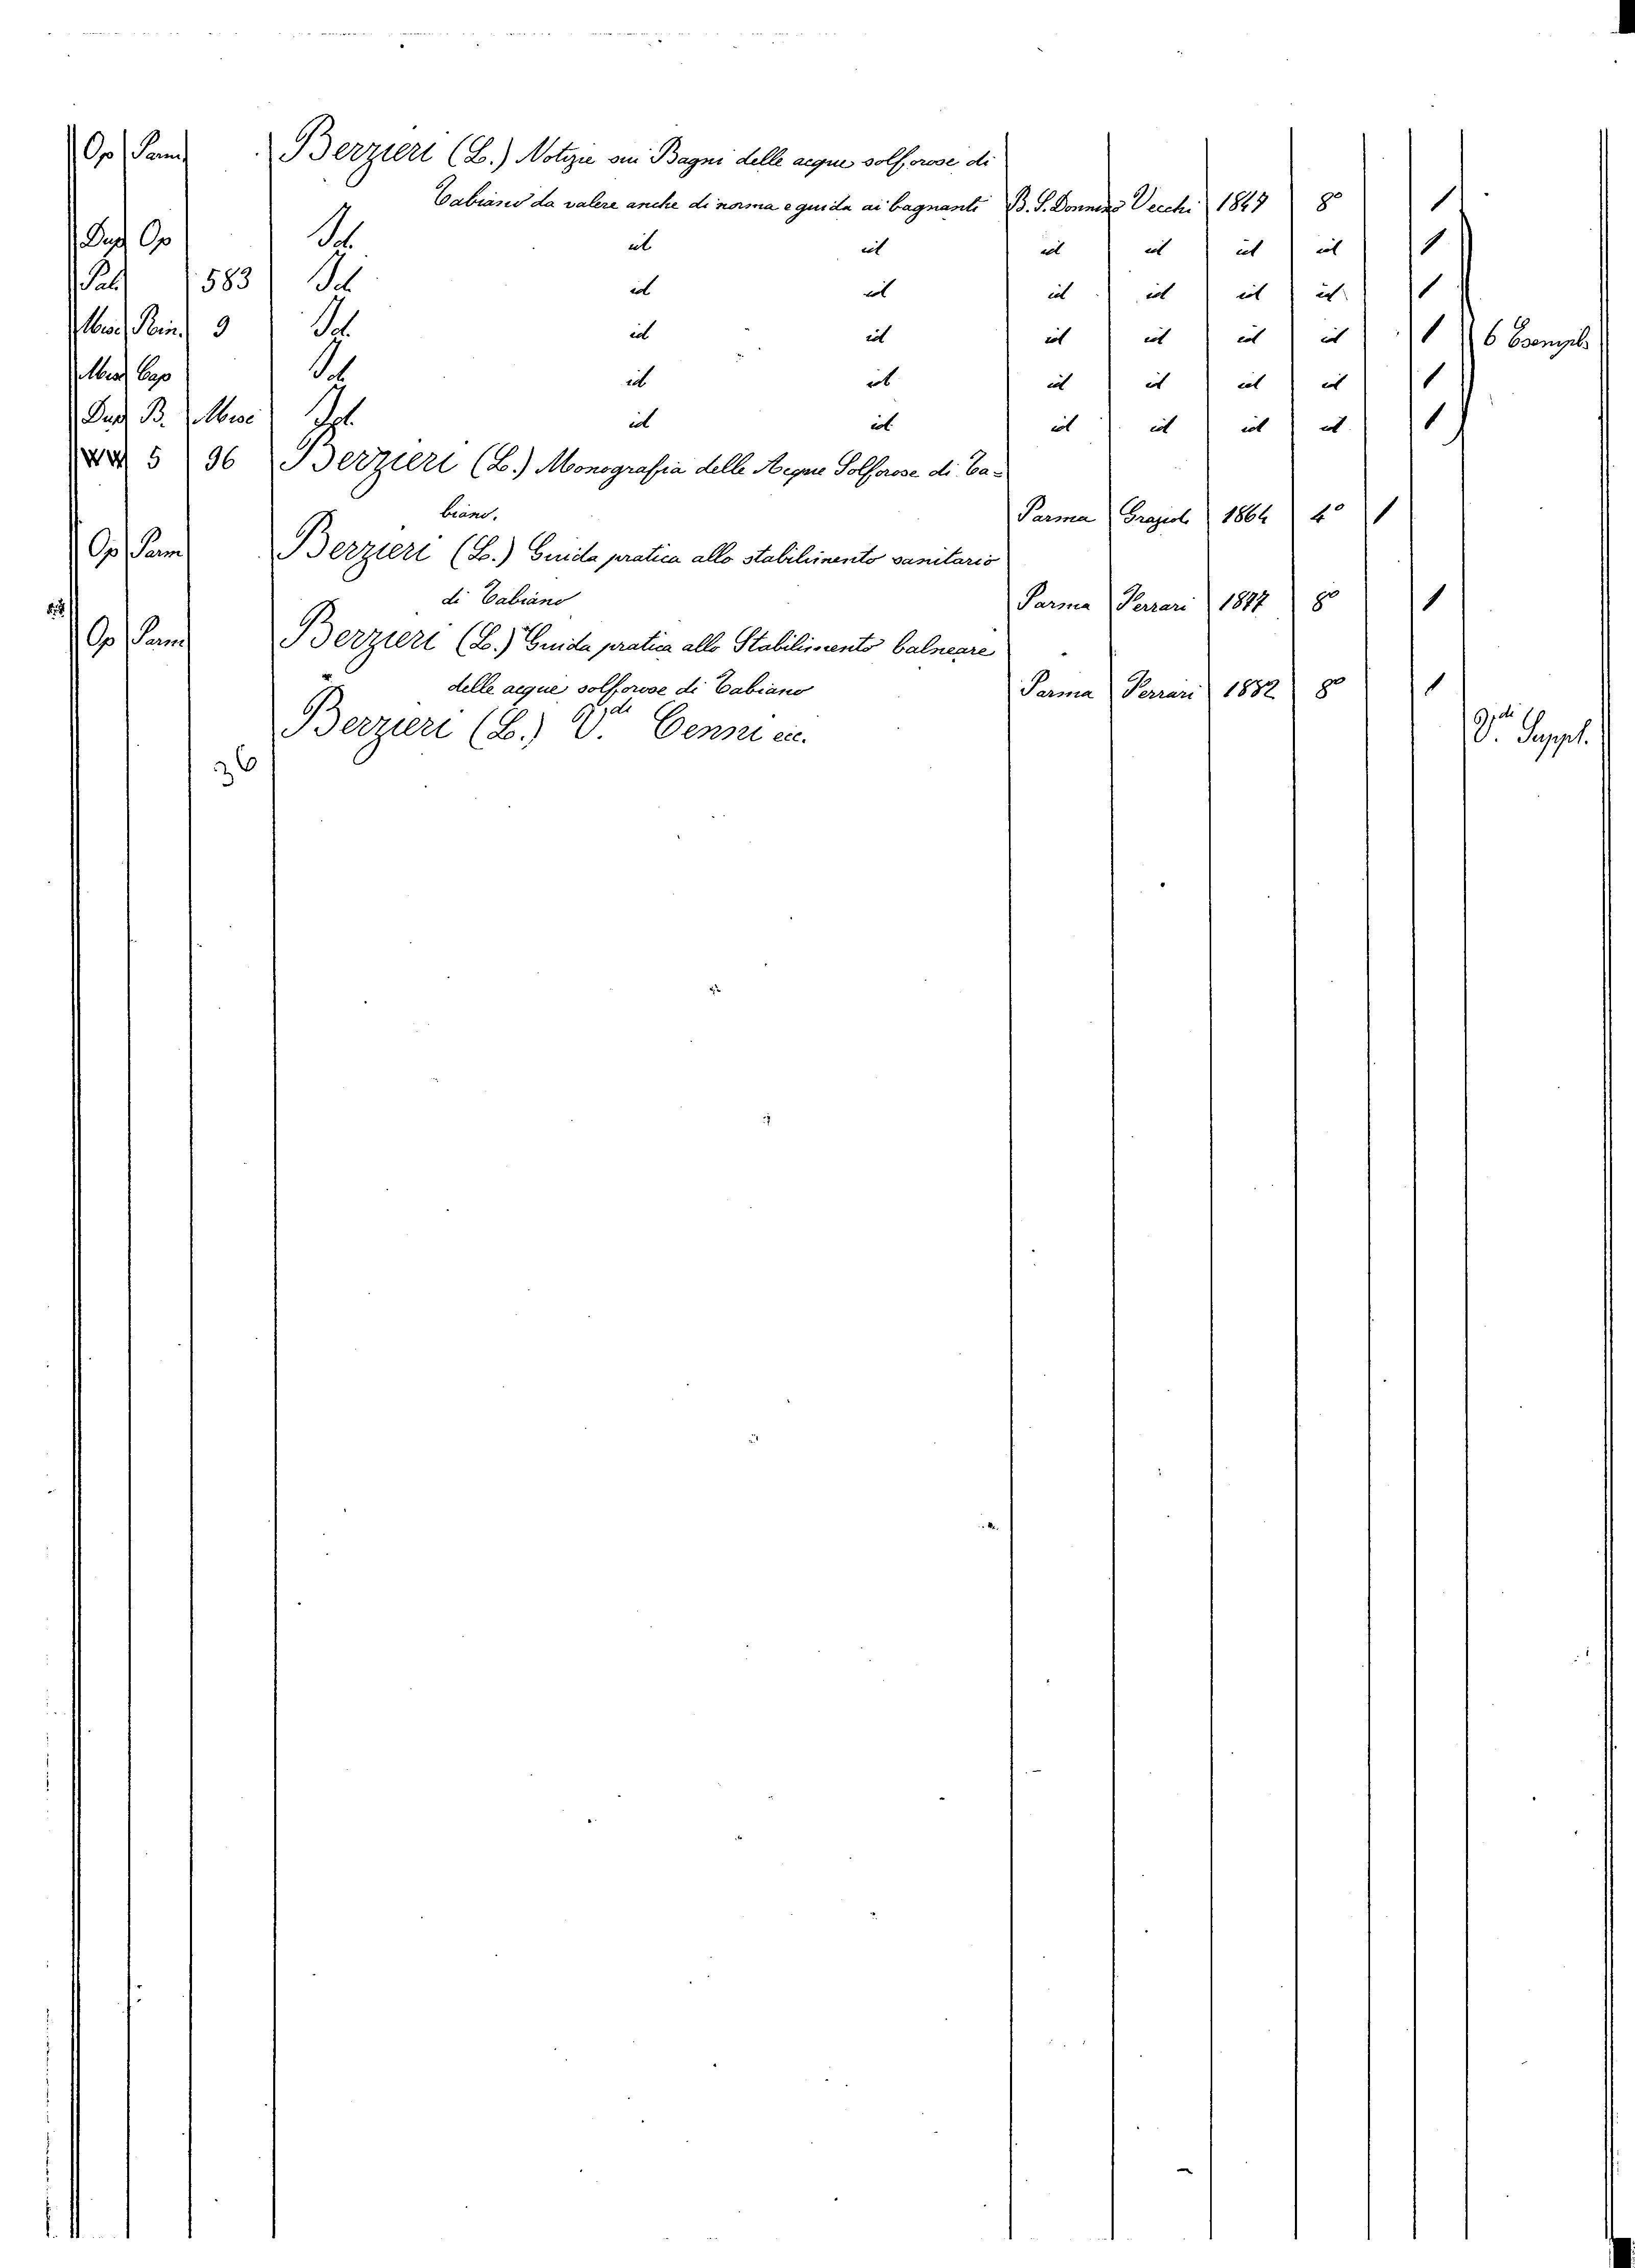 Op Parm Berzieri (L.) Notizie sui Bagni delle acque solforose di
Cabiano da valere anche di norma e guida ai bagnanti B. S. Donnino Vecchi 1847 8º 1
Dup Op Id. id id id id id id 1
Pal 583 Id id id id id id id 1
Misc Rin. 9 Id. id id id id id id 1 6 Esempl.
Misc Cap Id. id id id id id id 1
Dup B. Misc Id. id id id id id id 1
5 96 Berzieri (L.) Monografia delle Acque Solforose di Ca-
biano. Parma Grazioli 1864 4º 1
Op Parm Berzieri (L.) Guida pratica allo stabilimento sanitario
di Cabiano Parma Ferrari 1877 8º 1
Op Parm Berzieri (L.) Guida pratica allo Stabilimento balneare
delle acque solforose di Cabiano Parma Ferrari 1882 8º 1
Berzieri (L.) Vdi Cenni ec. Vdi Suppl.
36